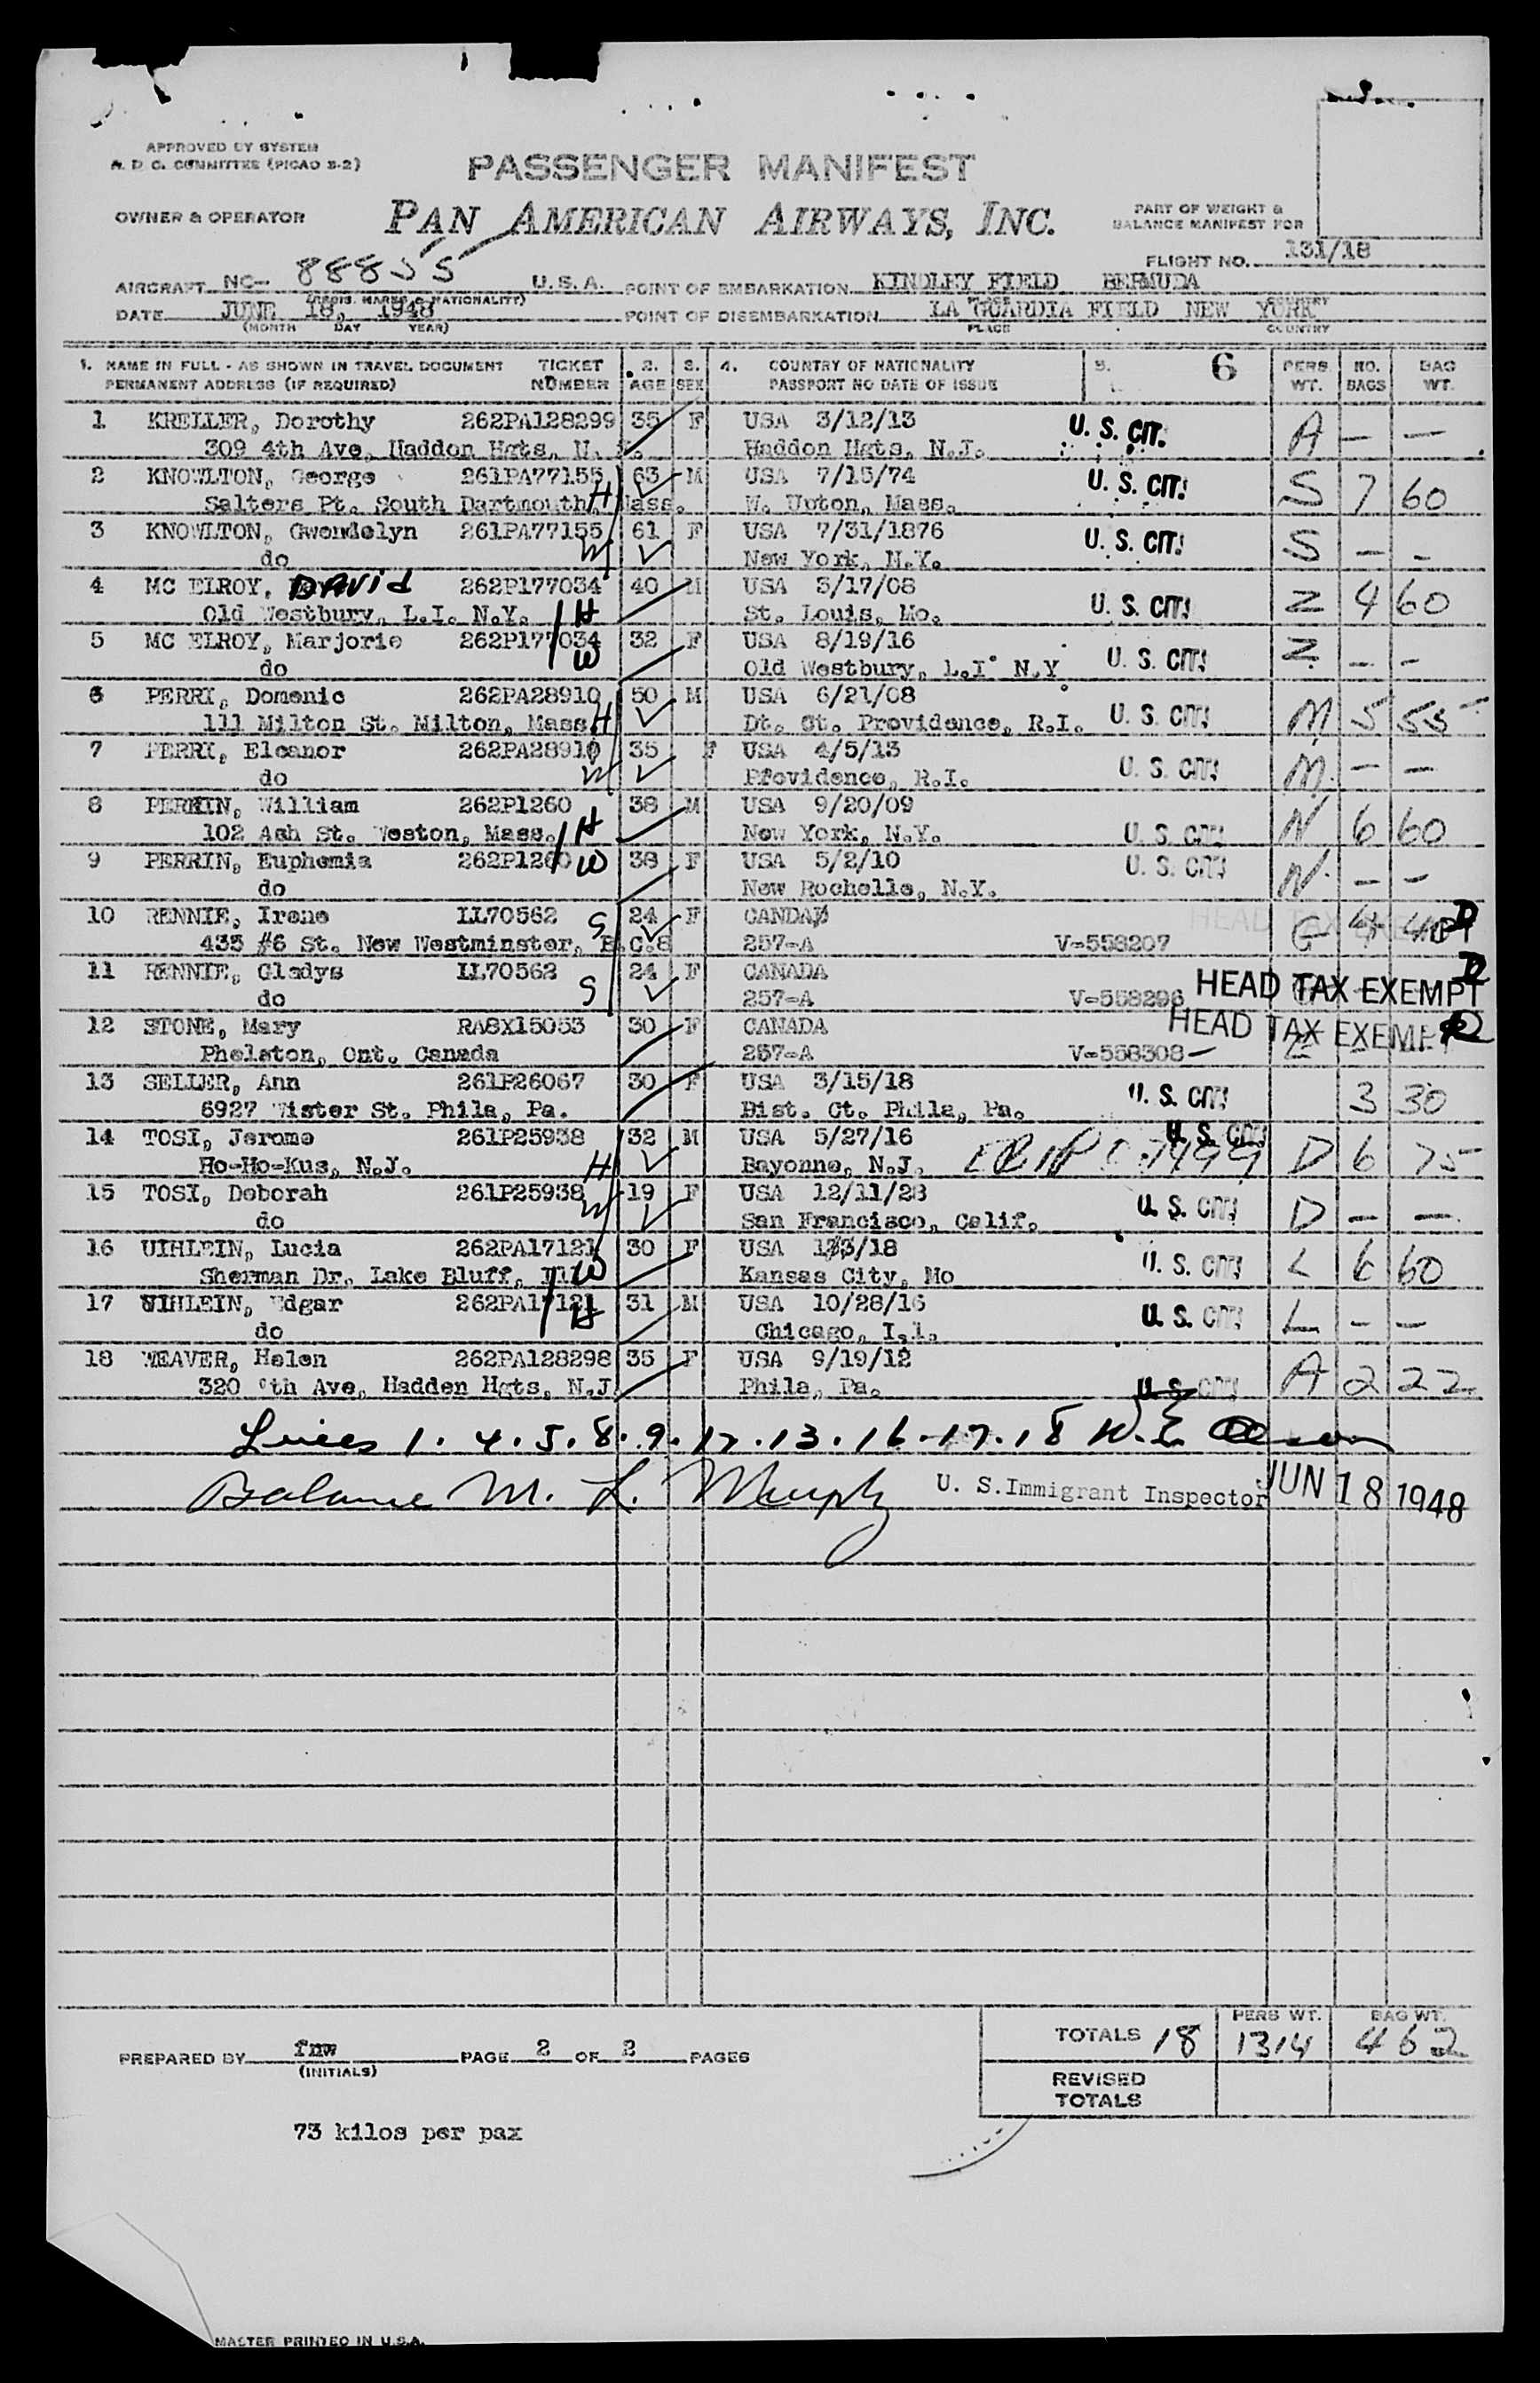 APPROVED BY SYSTEM
A. D. C. COMMITTEE (PICAO S-2)
PASSENGER MANIFEST
OWNER & OPERATOR
PAN AMERICAN AIRWAYS, INC.
PART OF WEIGHT &
BALANCE MANIFEST FOR
FLIGHT NO. 131/18
AIRCRAFT NC- 88855 U.S.A. POINT OF EMBARKATION KINDLEY FIELD BERMUDA
(REGIS. MARKS & NATIONALITY)
DATE JUNE 18, 1948 POINT OF DISEMBARKATION LA GUARDIA FIELD NEW YORK
(MONTH DAY YEAR) PLACE COUNTRY
1. NAME IN FULL - AS SHOWN IN TRAVEL DOCUMENT TICKET 2. 3. 4. COUNTRY OF NATIONALITY 5. 6 PERS. NO. BAG
PERMANENT ADDRESS (IF REQUIRED) NUMBER AGE SEX PASSPORT NO DATE OF ISSUE WT. BAGS WT.
1 KRELLER, Dorothy 262PA128299 35 F USA 3/12/13 U. S. CIT. A — —
309 4th Ave, Haddon Hgts, Haddon Hgts, N.J.
2 KNOWLTON, George 261PA77155 63 M USA 7/15/74 U. S. CIT. S 7 60
Salters Pt. South Dartmouth, Mass. H W. Upton, Mass.
3 KNOWLTON, Gwendelyn 261PA77155 61 F USA 7/31/1876 U. S. CIT. S — -
do W New York, N.Y.
4 MC ELROY, DAVID 262P177034 40 M USA 3/17/08 U. S. CIT. Z 4 60
Old Westbury, L.I. N.Y. H St. Louis, Mo.
5 MC ELROY, Marjorie 262P177034 32 F USA 8/19/16 U. S. CIT. Z — -
do W Old Westbury, L.I. N.Y
6 PERRI, Domenic 262PA28910 50 M USA 6/21/08 U. S. CIT. M 5 55
111 Milton St. Milton, Mass. H Dt. Ct. Providence, R.I.
7 PERRI, Eleanor 262PA28910 35 F USA 4/5/13 U. S. CIT. M — —
do W Providence, R.I.
8 PERRIN, William 262P1260 38 M USA 9/20/09 U. S. CIT. N 6 60
102 Ash St. Weston, Mass. H New York, N.Y.
9 PERRIN, Euphemia 262P1260 W 38 F USA 5/2/10 U. S. CIT. N — —
do New Rochelle, N.Y.
10 RENNIE, Irene LL70562 S 24 F CANDA HEAD TAX EXEMPT G 4 40
435 #6 St. New Westminster, B.C. 257-A V-558207
11 RENNIE, Gladys LL70562 S 24 F CANADA HEAD TAX EXEMPT
do 257-A V-558296
12 STONE, Mary RA8X15053 30 F CANADA HEAD TAX EXEMPT
Phelston, Ont. Canada 257-A V-558308
13 SELLER, Ann 261P26067 30 F USA 3/15/18 U. S. CIT. 3 30
6927 Wister St. Phila, Pa. Dist. Ct. Phila, Pa.
14 TOSI, Jerome 261P25938 32 M USA 5/27/16 U. S. CIT. D 6 75
Ho-Ho-Kus, N.J. H Bayonne, N.J.
15 TOSI, Deborah 261P25938 W 19 F USA 12/11/28 U. S. CIT. D — —
do San Francisco, Calif.
16 UIHLEIN, Lucia 262PA17121 30 F USA U. S. CIT. L 6 60
Sherman Dr. Lake Bluff, Ill W Kansas City, Mo
17 UIHLEIN, Edgar 262PA17121 31 M USA 10/28/16 U. S. CIT. L — —
do H Chicago, Ill.
18 WEAVER, Helen 262PA128298 35 F USA 9/19/12 U. S. CIT. A 2 22
320 Ave, Hadden Hgts, N.J. Phila, Pa.
Lines 1. 4. 5. 8. 9. 12. 13. 16. 17. 18 W. E.
Balance M. L. Murphy U. S. Immigrant Inspector JUN 18 1948
TOTALS 18 PERS WT. 1314 BAG WT. 462
PREPARED BY fnw PAGE 2 OF 2 PAGES
(INITIALS)
REVISED TOTALS
73 kilos per pax
MASTER PRINTED IN U.S.A.